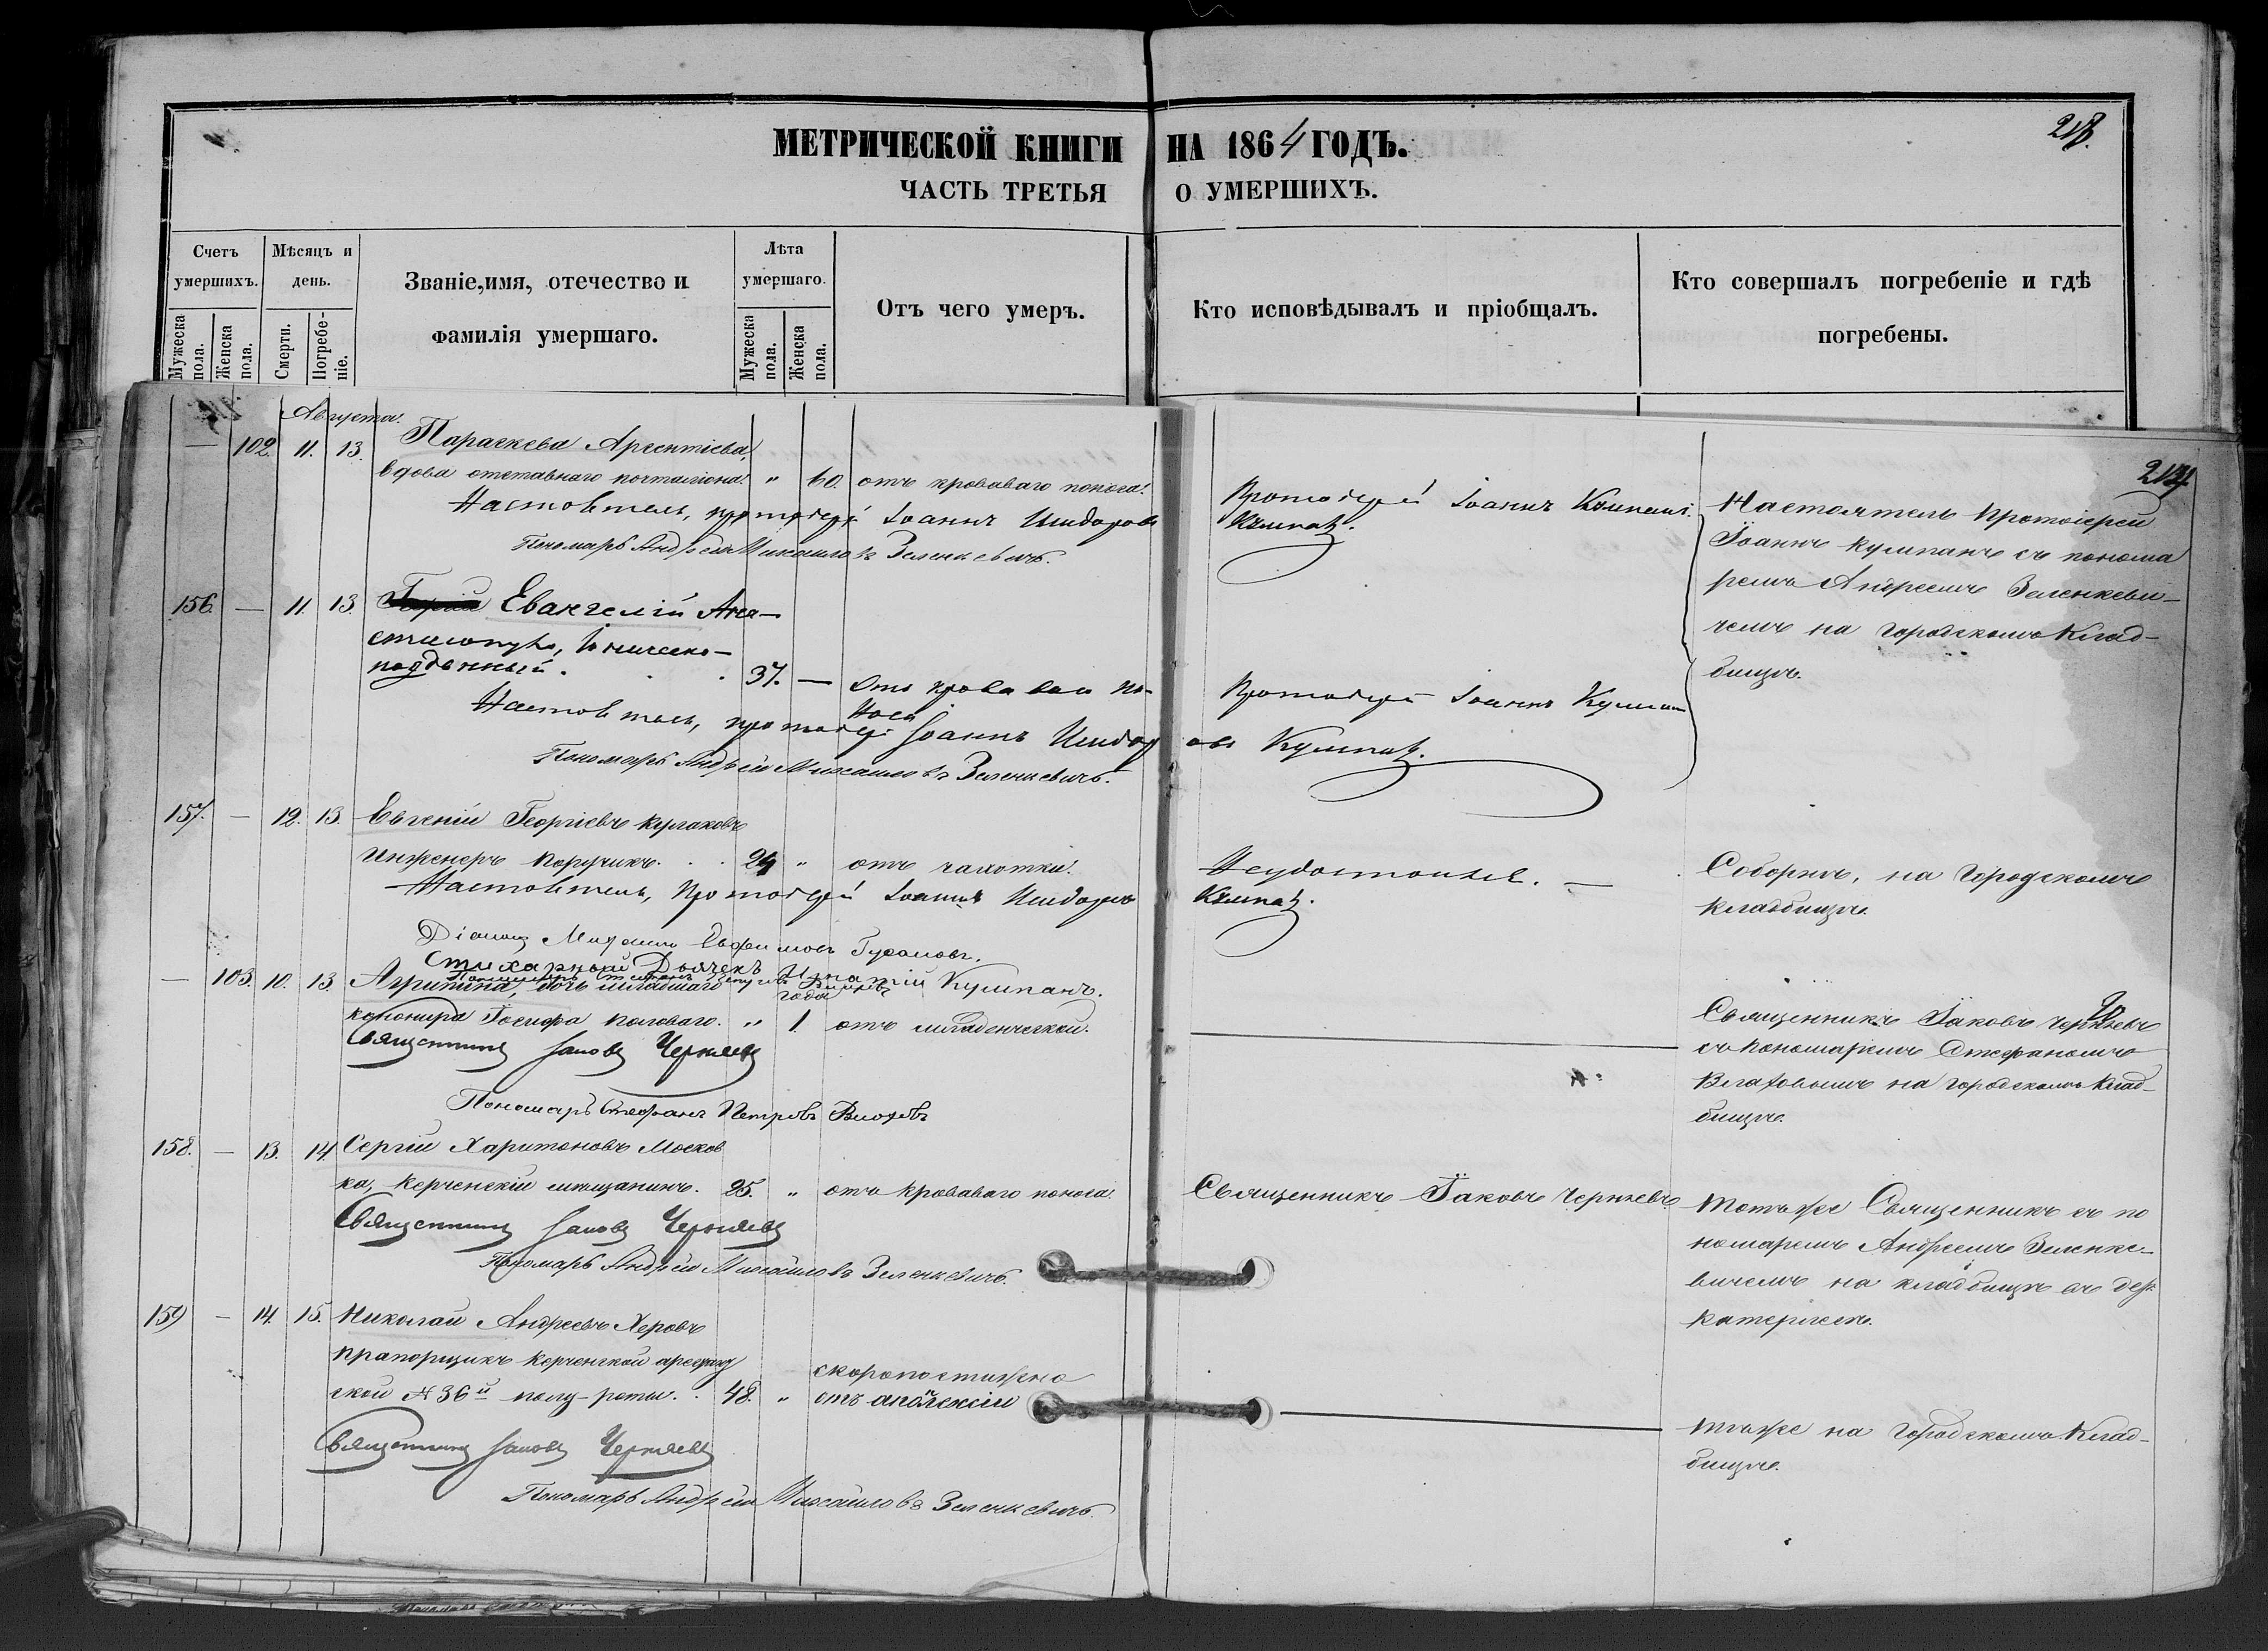 МЕТРИЧЕСКОЙ КНИГИ НА 1864 ГОДЪ.
ЧАСТЬ ТРЕТЬЯ О УМЕРШИХЪ.
Счетъ умершихъ.
Мужеска пола.
Женска пола.
Мѣсяцъ и день.
Смерти.
Погребе-
ніе.
Званіе, имя, отечество и
фамилія умершаго.
Лѣта умершаго.
Мужеска пола.
Женска пола.
Отъ чего умеръ.
Кто исповѣдывалъ и пріобщалъ.
Кто совершалъ погребеніе и гдѣ
погребены.
Августа.
— 102. 11. 13. Параскева Арсентіева,
вдова отставнаго почталіона. " 60. отъ кроваваго поноса.
Протоіерей Іоаннъ
Настоятель протоіерей
Іоаннъ Кумпанъ съ понома
ремъ Андреемъ Зеленкеви-
чемъ на городскомъ клад-
бищѣ.
Настоятель, протоіерей Іоаннъ Исидоровъ Кумпанъ.
Пономарь Андрей Михайловъ Зеленкевичъ.
156. — 11. 13. Евангелій
подданный. 37. — Отъ кровавого по-
носа
Протоіерей Іоаннъ Кумпан
Настоятель, протоіер Іоаннъ Исидоровъ Кумпанъ.
Пономарь Андрей Михайловъ Зеленкевичъ.
157. — 12. 13. Евгеній Георгіевъ Кулаковъ
Инженеръ Поручикъ. 24 " отъ чахотки.
Неудостоился. —
Соборнѣ, на городскомъ
кладбищѣ.
Настоятель, протоіерей Іоаннъ Исидоровъ Кумпанъ.
Діаконъ Евфимовъ
Стихарный Дьячекъ Игнатій Кумпанъ.
— 103. 10. 13. Агрипина, дочь младшаго
года
Іосифа Половаго. " 1. отъ младенческой.
Священникъ Іаковъ Черняевъ
съ пономаремъ Стефаномъ
на городскомъ клад-
бищѣ.
Священникъ Іаковъ Черняевъ
Пономарь Стефанъ Петровъ
158. — 13. 14. Сергій Харитоновъ Москов
ка, Керченскій мѣщанинъ. 25. " отъ кроваваго поноса.
Священникъ Іаковъ Черняевъ
Тотъ же Священникъ съ по
номаремъ Андреемъ Зеленке-
вичемъ на кладбищѣ въ дер.
Катерлесъ.
Священникъ Іаковъ Черняевъ
Пономарь Андрей Михайловъ Зеленкевичъ.
159 — 14. 15. Николай Андреевъ Херовъ
прапорщикъ Керченской арестант
ской № 36й полу-роты. 48. " скоропостижно
отъ апоплексіи
Тѣже на городскомъ клад-
бищѣ.
Священникъ Іаковъ Черняевъ
Пономарь Андрей Михайловъ Зеленкевичъ.